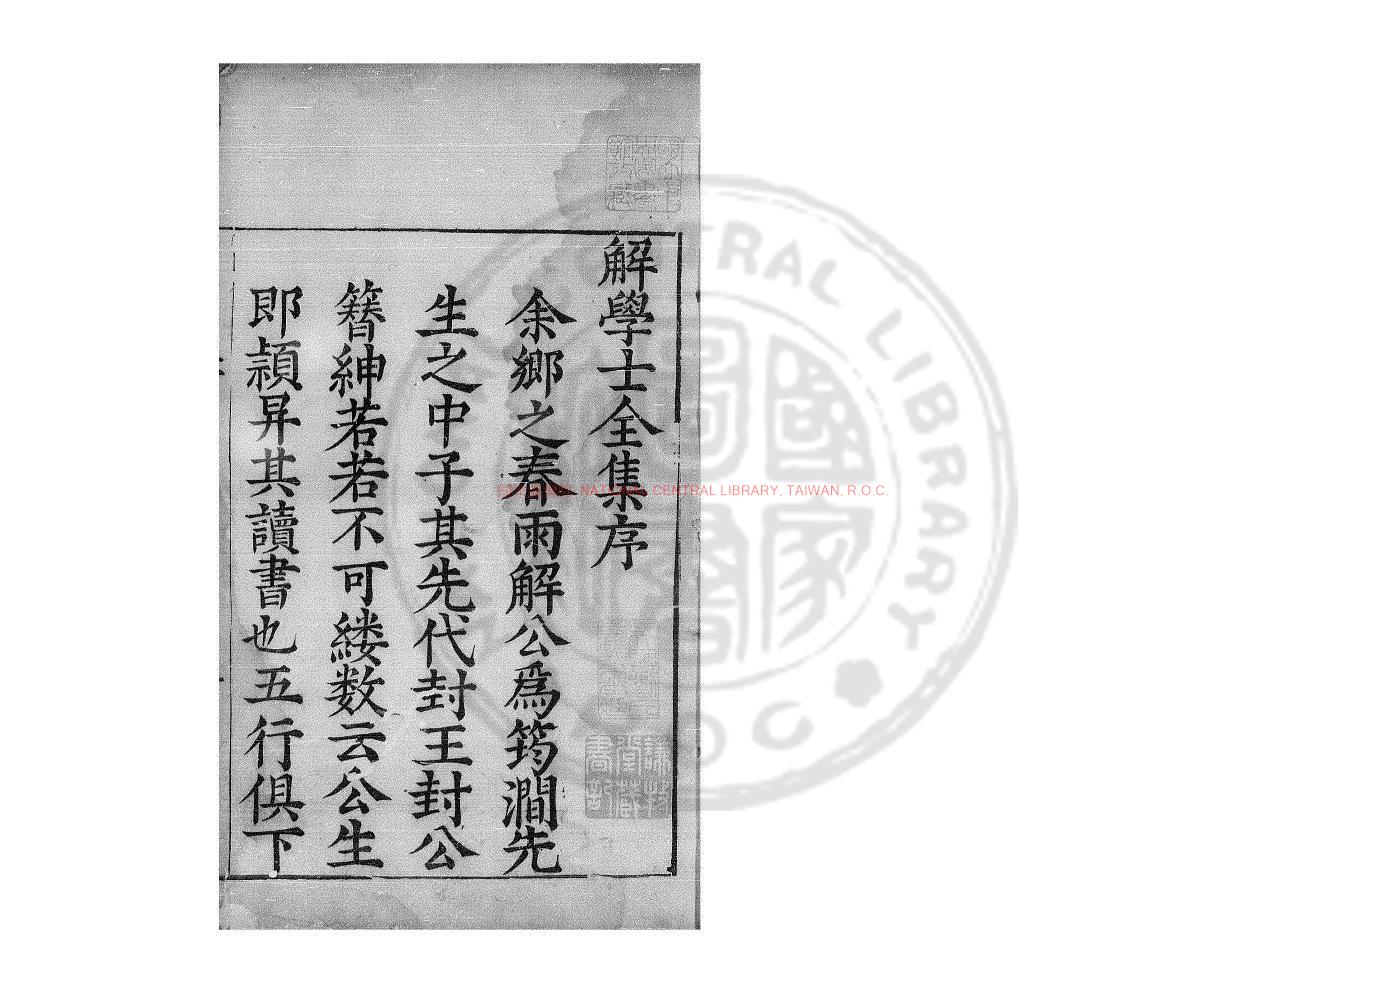 解學士全集序
余鄉之春雨解公爲筠澗先
生之中子其先代封王封公
簪紳若若不可縷数云公生
即頴昇其讀書也五行俱下
NATIONAL CENTRAL LIBRARY, TAIWAN, R.O.C.